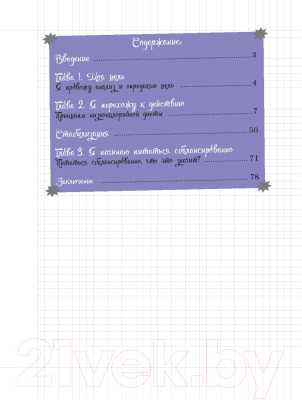 Содержание
Введение 3
Глава 1. Моя цель
Я провожу анализ и определяю цель 4
Глава 2. Я перехожу к действию
Принципы низкокалорийной диеты 7
Стабилизация 50
Глава 3. Я начинаю питаться сбалансированно
Питаться сбалансированно, что это значит? 71
Заключение 78
21vek.by